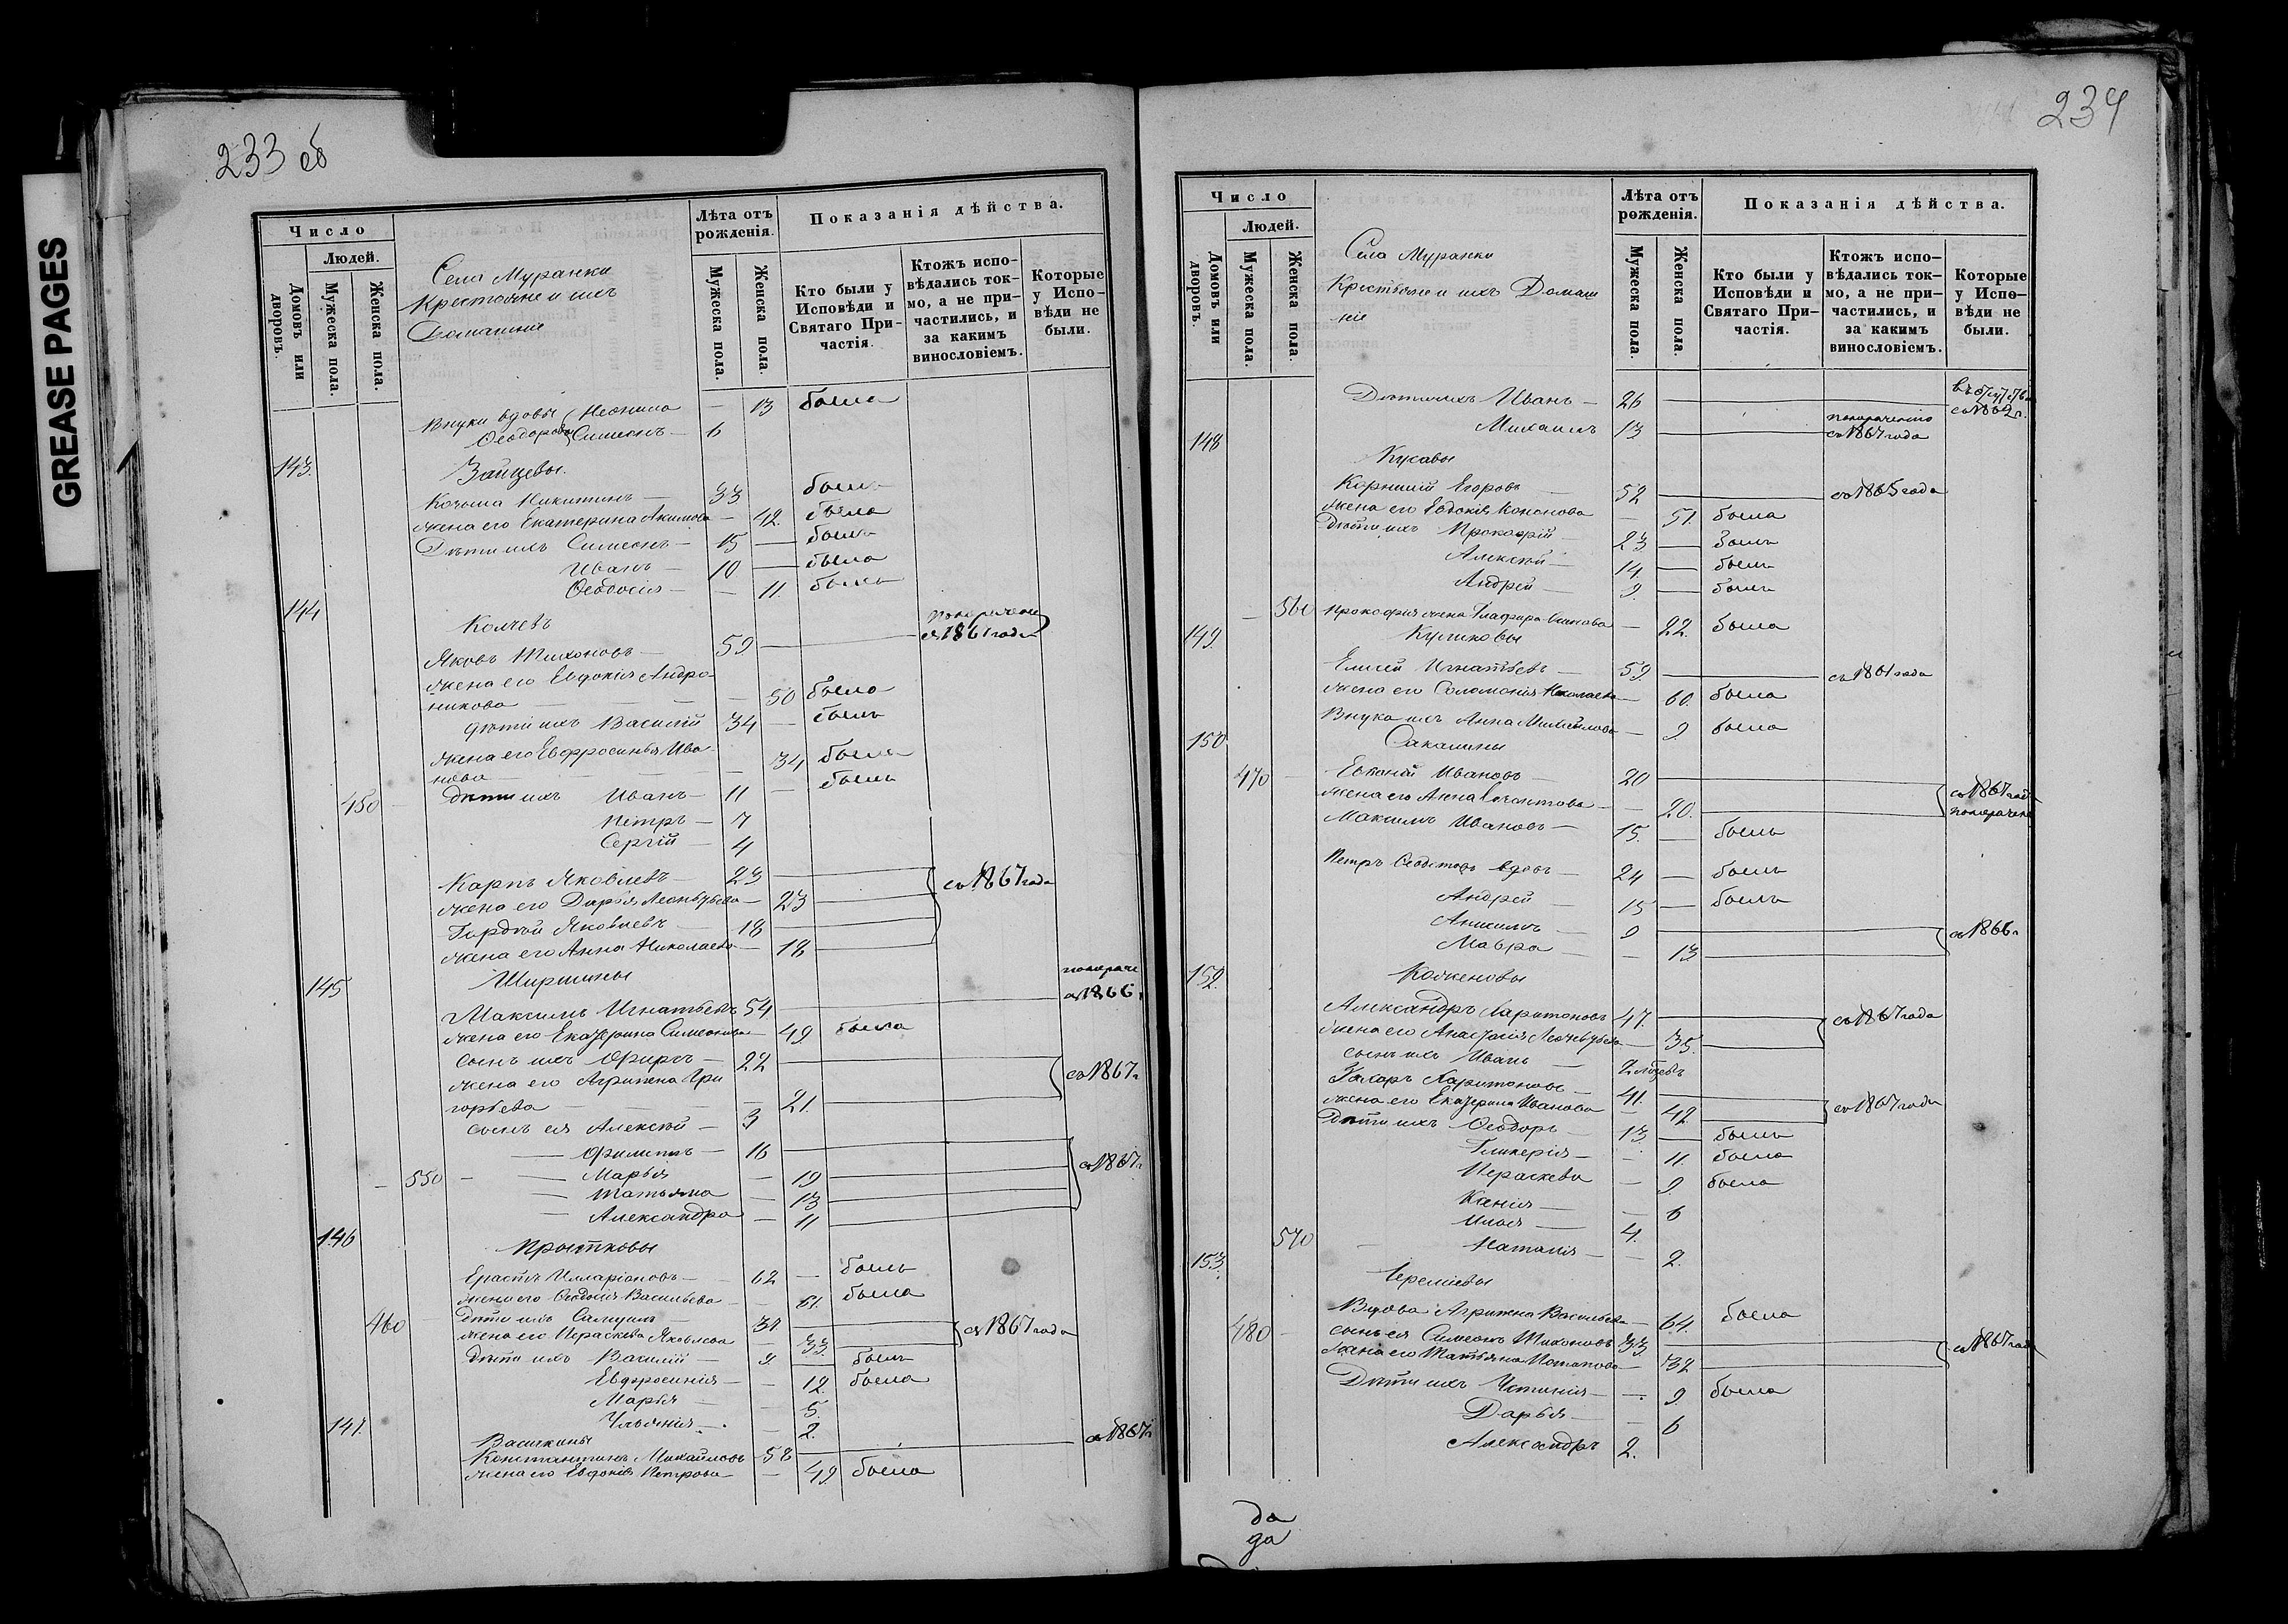 GREASE PAGES
233 об
Число
Людей.
Домовъ или дворовъ.
Мужеска пола.
Женска пола.
Села Муранки
Крестьяне и ихъ
Домашніе
Лѣта отъ рожденія.
Мужеска пола.
Женска пола.
Показанія дѣйства.
Кто были у Исповѣди и Святаго Причастія.
Ктожъ исповѣдались токмо, а не причастились, и за какимъ винословіемъ.
Которые у Исповѣди не были.
Внуки вдовы Неонила — 13 была
Ѳеодоровы Симеонъ — 6
143. Зайцевы
Козьма Никитинъ — 33 былъ
жена его Екатерина Акимова — 42. была
Дѣти ихъ Симеонъ — 15 — былъ
Иванъ — 10 — былъ
Ѳеодосія — 11. была
144
Яковъ Тихоновъ — 59. — съ 1861 года
жена его Евдокія Андро-
никова — 50 была
дѣти ихъ Василій 34 — былъ
жена его Евфросинья Ива-
нова — 34 была
450 дѣти ихъ Иванъ — 11 — былъ
Петръ — 7
Сергій — 4
Карпъ Яковлевъ — 23 — съ 1867 года
жена его Дарья Леонтьева — 23
Гордѣй Яковлевъ — 18
жена его Анна Николаева — 18
145 Ширшины
Максимъ Игнатьевъ 54 — съ 1866
жена его Екатерина Симеонова — 49 была
сынъ ихъ Фирсъ — 22 — съ 1867 г
жена его Агрипена Гри
горьева — 21.
сынъ ея Алексѣй — 3
— Филиппъ — 16 — съ 1867 г
550 — Марья — 19
— Татьяна — 13
— Александра — 11
146
Ерастъ Илларіоновъ — 62 — былъ
жена его Ѳеодосія Васильева — 61. была
460 Дѣти ихъ Самуилъ — 31 — съ 1867 года
жена его Параскева Яковлева — 33.
Дѣти ихъ Василій — 9. былъ
Евфросинія — 12. была
Марья — 5.
Ульянія — 2.
147.
Константинъ Михайловъ — 58 — съ 1867 г
жена его Евдокія Петрова — 49 была
234
Число
Людей.
Домовъ или дворовъ.
Мужеска пола.
Женска пола.
Села Муранки
Крестьяне и ихъ Домаш
ніе
Лѣта отъ рожденія.
Мужеска пола.
Женска пола.
Показанія дѣйства.
Кто были у Исповѣди и Святаго Причастія.
Ктожъ исповѣдались токмо, а не причастились, и за какимъ винословіемъ.
Которые у Исповѣди не были.
Дѣти ихъ Иванъ — 26
Михаилъ 13 — съ 1867 года
148
Корнилій Егоровъ — 52 — съ 1865 года
жена его Евдокія Кононова — 51. была
Дѣти ихъ Прокофій — 23 — былъ
Алексѣй — 14. — былъ
Андрей — 9. — былъ
560 Прокофія жена Глафира — 22. была
149. Куликовы
Елисей Игнатьевъ — 59. — съ 1861 года
жена его Соломонія Николаева — 60. была
Внука ихъ Анна — 9. была
150
470 Ивановъ — 20 — съ 1867 года
жена его Анна — 20.
Максимъ Ивановъ — 15. — былъ
Петръ вдовъ — 24 — былъ
Андрей — 15 — былъ
9 — съ 1866 г
Мавра — 13.
152.
Александръ Харитоновъ 47. — съ 1867 года
жена его Анастасія Леонтьева — 35.
сынъ ихъ Иванъ —
Захаръ Харитоновъ — 41. — съ 1867 года
жена его Екатерина Иванова — 42
Дѣти ихъ Ѳеодоръ — 13 — былъ
Гликерія — 11. была
Параскева — 9. была
Ксенія — 6
Илья — 4.
570 Наталія — 2.
153.
Вдова Агрипена Васильева — 64. была
480 сынъ ея Симеонъ Тихоновъ 33. — съ 1867 года
жена его Татьяна Потапова — 32
Дѣти ихъ Устинія — 9. была
Дарья — 6
Александръ 2.
да
да